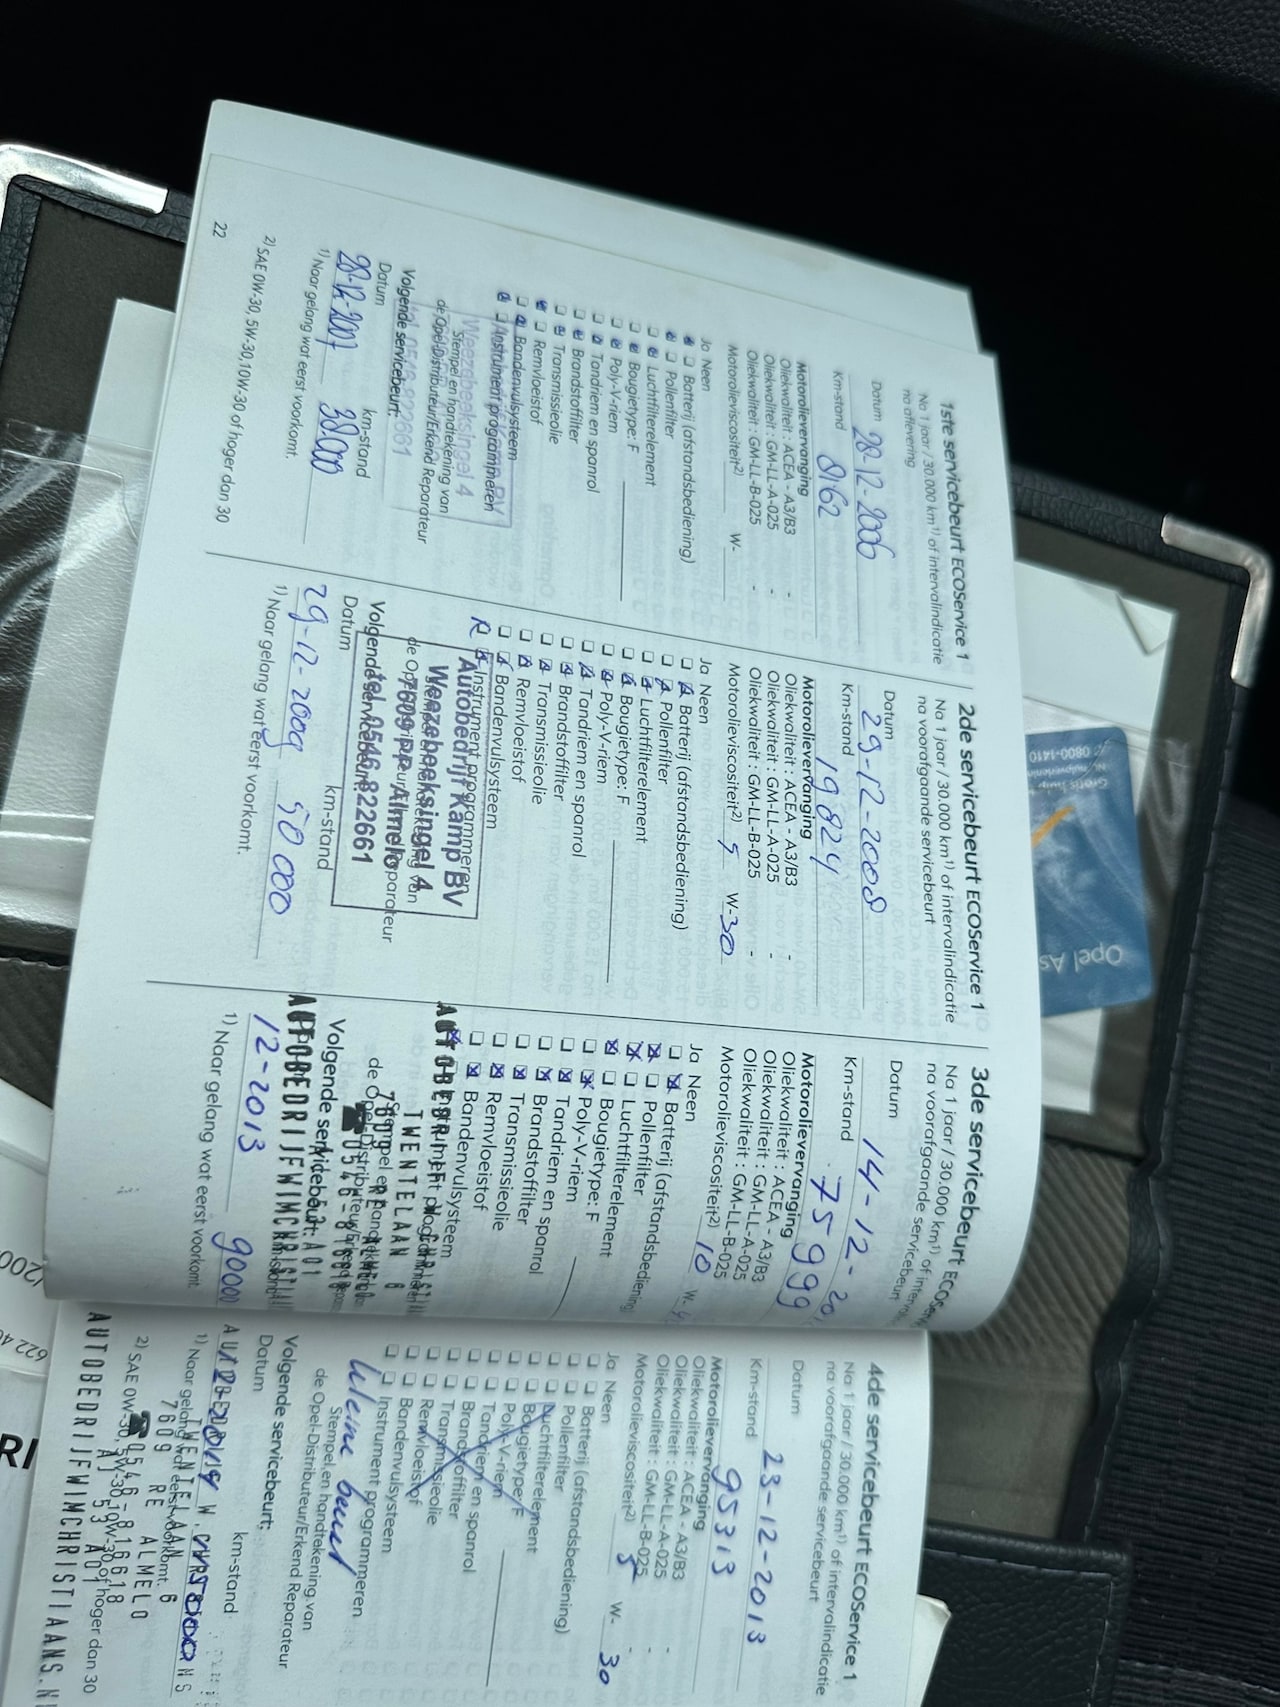 1ste servicebeurt ECOService 1
Na 1 jaar / 30.000 km¹⁾ of intervalindicatie
na aflevering
Datum 28-12-2006
Km-stand 8162
Motorolievervanging
Oliekwaliteit : ACEA - A3/B3 -
Oliekwaliteit : GM-LL-A-025 -
Oliekwaliteit : GM-LL-B-025 -
Motorolieviscositeit²⁾ W-
Ja Neen
Batterij (afstandsbediening)
Pollenfilter
Luchtfilterelement
Bougietype: F
Poly-V-riem
Tandriem en spanrol
Brandstoffilter
Transmissieolie
Remvloeistof
Bandenvulsysteem
Instrument programmeren
Weezebeeksingel 4
Stempel en handtekening van
de Opel-Distributeur/Erkend Reparateur
Volgende servicebeurt:
Datum km-stand
28-12-2007 38000
¹⁾ Naar gelang wat eerst voorkomt.
²⁾ SAE 0W-30, 5W-30, 10W-30 of hoger dan 30
22
2de servicebeurt ECOService 1
Na 1 jaar / 30.000 km¹⁾ of intervalindicatie
na voorafgaande servicebeurt
Datum 29-12-2008
Km-stand 19824
Motorolievervanging
Oliekwaliteit : ACEA - A3/B3 -
Oliekwaliteit : GM-LL-A-025 -
Oliekwaliteit : GM-LL-B-025 -
Motorolieviscositeit²⁾ 5 W-30
Ja Neen
Batterij (afstandsbediening)
Pollenfilter
Luchtfilterelement
Bougietype: F
Poly-V-riem
Tandriem en spanrol
Brandstoffilter
Transmissieolie
Remvloeistof
Bandenvulsysteem
R Instrument programmeren
Autobedrijf Kamp BV
Weezebeeksingel 4
7609 PP Almelo
tel. 0546-822661
Volgende servicebeurt:
Datum km-stand
29-12-2009 50000
¹⁾ Naar gelang wat eerst voorkomt.
3de servicebeurt
Na 1 jaar / 30.000 km¹⁾ of
na voorafgaande servicebeurt
Datum 14-12-20
Km-stand 75999
Motorolievervanging
Oliekwaliteit : ACEA - A3/B3
Oliekwaliteit : GM-LL-A-025
Oliekwaliteit : GM-LL-B-025
Motorolieviscositeit²⁾ 10 W-
Ja Neen
Batterij (afstandsbediening
Pollenfilter
Luchtfilterelement
Bougietype: F
Poly-V-riem
Tandriem en spanrol
Brandstoffilter
Transmissieolie
Remvloeistof
Bandenvulsysteem
TWENTELAAN 6
Volgende servicebeurt:
AUTOBEDRIJFWIMCHRISTIA
12-2013 90000
¹⁾ Naar gelang wat eerst voorkomt.
4de servicebeurt ECOService 1
Na 1 jaar / 30.000 km¹⁾ of intervalindicatie
na voorafgaande servicebeurt
Datum 23-12-2013
Km-stand 95313
Motorolievervanging
Oliekwaliteit : ACEA - A3/B3 -
Oliekwaliteit : GM-LL-A-025 -
Oliekwaliteit : GM-LL-B-025 -
Motorolieviscositeit²⁾ 5 W- 30
Ja Neen
Batterij (afstandsbediening)
Pollenfilter
Luchtfilterelement
Bougietype: F
Poly-V-riem
Tandriem en spanrol
Brandstoffilter
Transmissieolie
Remvloeistof
Bandenvulsysteem
Instrument programmeren
kleine beurt
Stempel en handtekening van
de Opel-Distributeur/Erkend Reparateur
Volgende servicebeurt:
Datum km-stand
TWENTELAAN 6
7609 RE ALMELO
0546-816618
AUTOBEDRIJFWIMCHRISTIAANS.N
Opel As
0800-1410